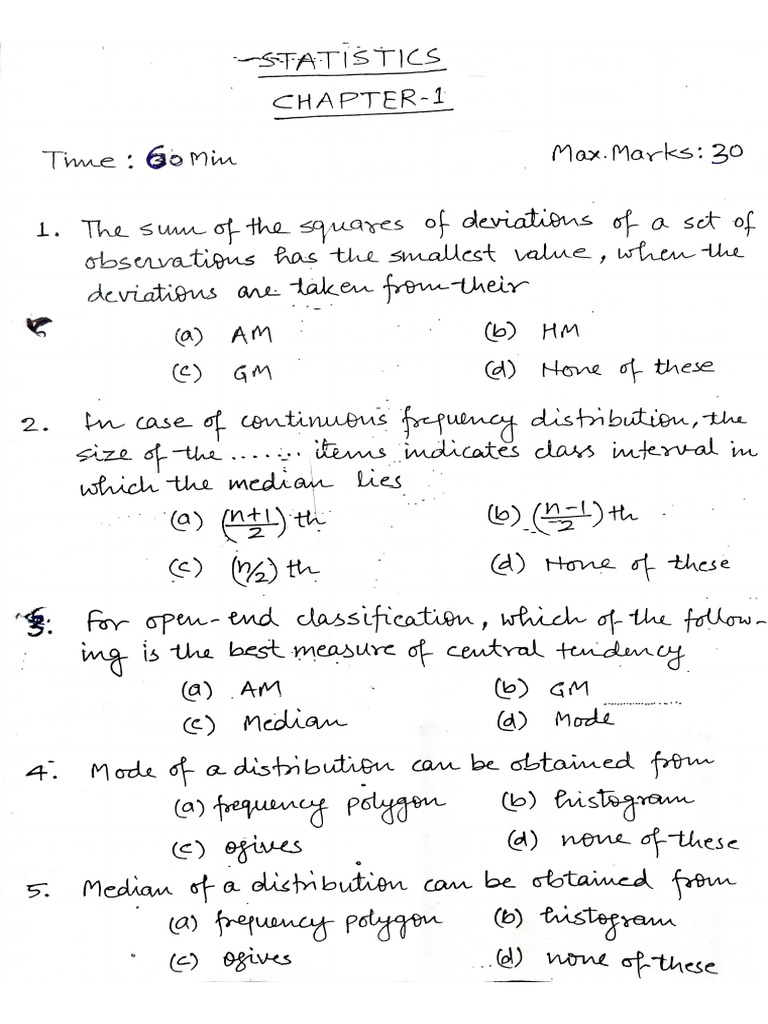 STATISTICS
CHAPTER-1
Time: 60 Min Max. Marks: 30
1. The sum of the squares of deviations of a set of
observations has the smallest value, when the
deviations are taken from their
(a) AM (b) HM
(c) GM (d) None of these
2. In case of continuous frequency distribution, the
size of the ....... items indicates class interval in
which the median lies
(a) (n+1/2) th (b) (n-1/2) th
(c) (n/2) th (d) None of these
3. For open-end classification, which of the follow-
ing is the best measure of central tendency
(a) AM (b) GM
(c) Median (d) Mode
4. Mode of a distribution can be obtained from
(a) frequency polygon (b) histogram
(c) ogives (d) none of these
5. Median of a distribution can be obtained from
(a) frequency polygon (b) histogram
(c) ogives (d) none of these